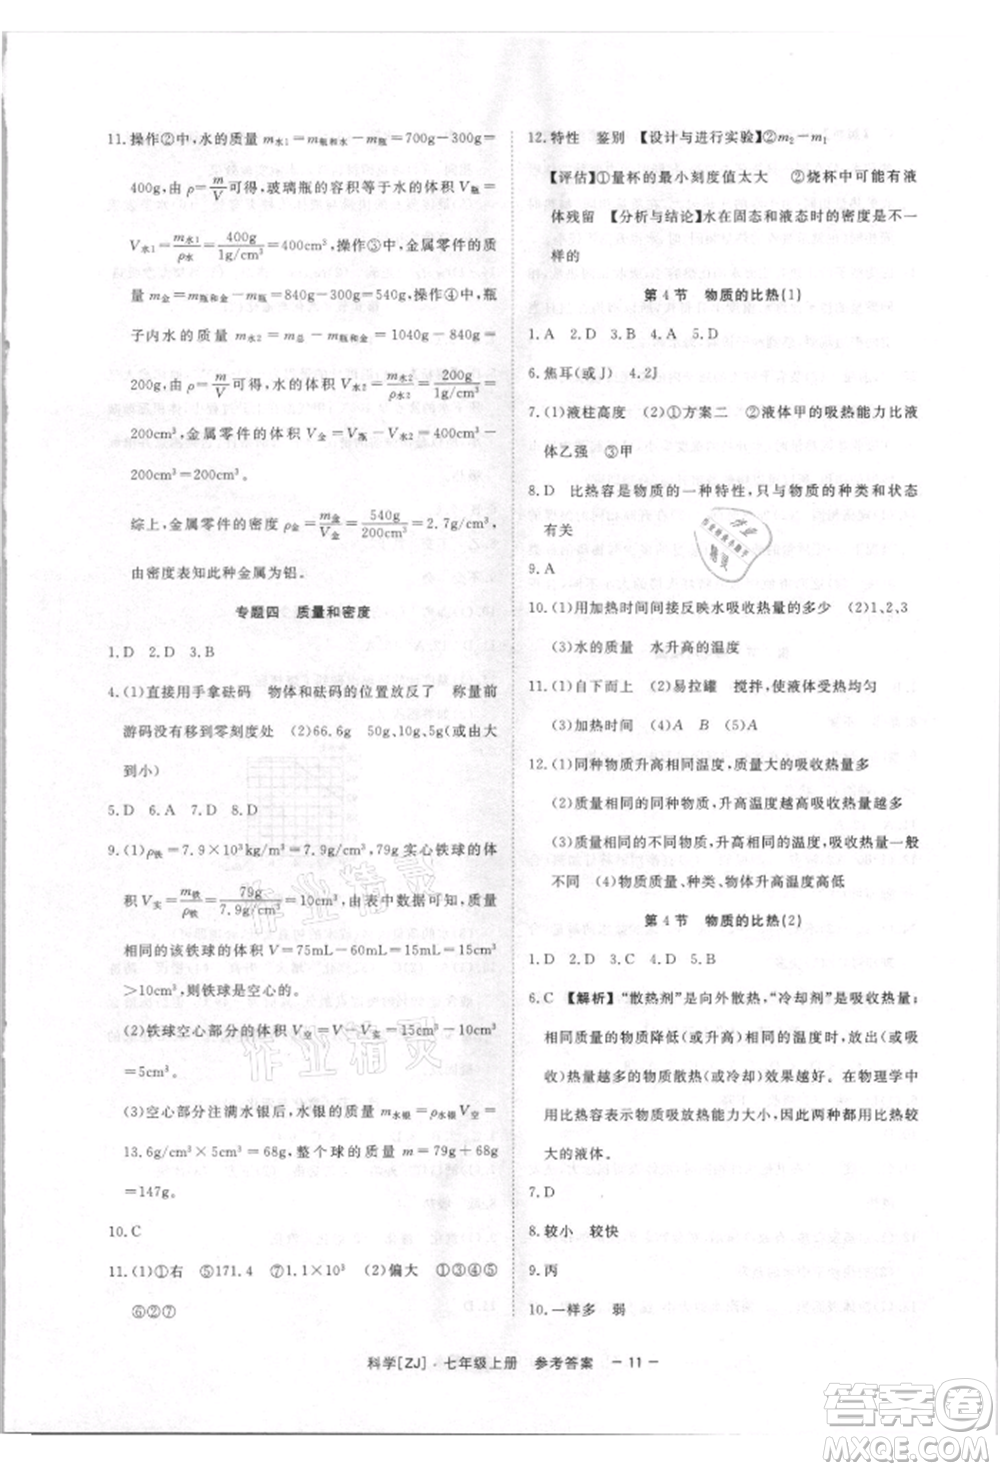 11.操作②中,水的质量 m水1=m瓶和水-m瓶=700g-300g=
400g,由 ρ=m/V可得,玻璃瓶的容积等于水的体积 V瓶
=V水1=m水1/ρ水=400g/1g/cm³=400cm³,操作③中,金属零件的质
量 m金=m瓶和金-m瓶=840g-300g=540g,操作④中,瓶
子内水的质量 m水2=m总-m瓶和金=1040g-840g=
200g,由 ρ=m/V可得,水的体积 V水2=m水2/ρ水=200g/1g/cm³=
200cm³,金属零件的体积 V金=V瓶-V水2=400cm³-
200cm³=200cm³。
综上,金属零件的密度 ρ金=m金/V金=540g/200cm³=2.7g/cm³,
由密度表知此种金属为铝。
专题四 质量和密度
1.D 2.D 3.B
4.(1)直接用手拿砝码 物体和砝码的位置放反了 称量前
游码没有移到零刻度处 (2)66.6g 50g、10g、5g(或由大
到小)
5.D 6.A 7.D 8.D
9.(1)ρ铁=7.9×10³kg/m³=7.9g/cm³,实心铁球的体
积 V实=m铁/ρ铁=79g/7.9g/cm³=10cm³,由表中数据可知,质量
相同的该铁球的体积 V=75mL-60mL=15mL=15cm³
>10cm³,则铁球是空心的。
(2)铁球空心部分的体积 V空=V-V实=15cm³-10cm³
=5cm³。
(3)空心部分注满水银后,水银的质量 m水银=ρ水银V空=
13.6g/cm³×5cm³=68g,整个球的质量 m=79g+68g
=147g。
10.C
11.(1)①右 ⑤171.4 ⑦1.1×10³ (2)偏大 ①③④⑤
⑥②⑦
12.特性 鉴别 【设计与进行实验】②m₂-m₁
【评估】①量杯的最小刻度值太大 ②烧杯中可能有液
体残留 【分析与结论】水在固态和液态时的密度是不一
样的
第4节 物质的比热(1)
1.A 2.D 3.B 4.A 5.D
6.焦耳(或J) 4.2J
7.(1)液柱高度 (2)①方案二 ②液体甲的吸热能力比液
体乙强 ③甲
8.D 比热容是物质的一种特性,只与物质的种类和状态
有关
9.A
10.(1)用加热时间间接反映水吸收热量的多少 (2)1、2、3
(3)水的质量 水升高的温度
11.(1)自下而上 (2)易拉罐 搅拌,使液体受热均匀
(3)加热时间 (4)A B (5)A
12.(1)同种物质升高相同温度,质量大的吸收热量多
(2)质量相同的同种物质,升高温度越高吸收热量越多
(3)质量相同的不同物质,升高相同温度,吸收热量一般
不同 (4)物质质量、种类、物体升高温度高低
第4节 物质的比热(2)
1.D 2.D 3.C 4.B 5.D
6.C 【解析】“散热剂”是向外散热,“冷却剂”是吸收热量;
相同质量的物质降低(或升高)相同的温度时,放出(或
吸收)的热量越多,物质散热(或冷却)效果好。在物理学中
用比热容表示物质吸放热能力大小,因此两种都用比热较
大的液体。
7.D
8.较小 较快
9.丙
10.一样多 弱
科学[ZJ]·七年级上册 参考答案 -11-
作业精灵
作业精灵
答案卷
MXQE.COM